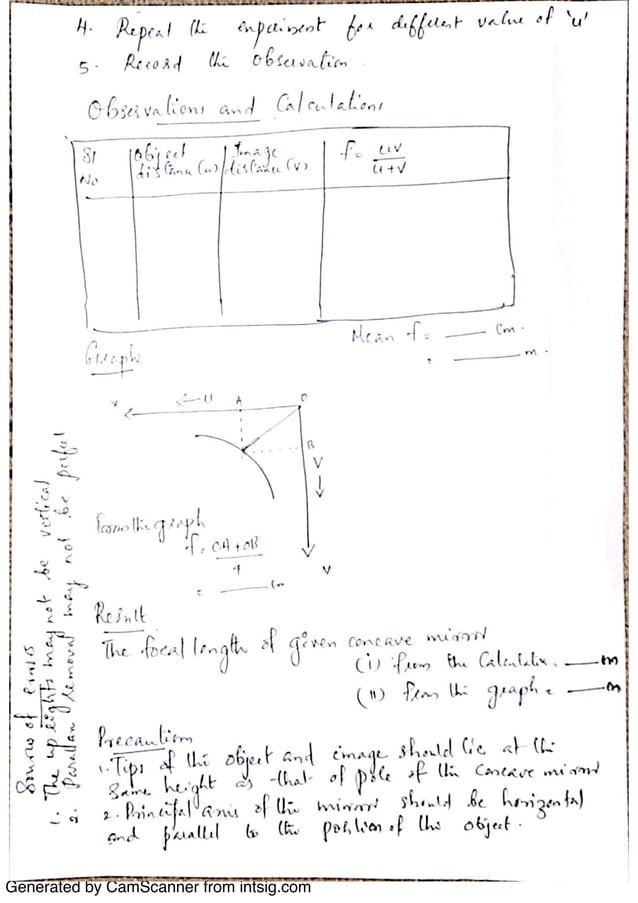 4. Repeat the experiment for different value of 'u'
5. Record the observation.
Observations and Calculations
Sl No
object distance (u)
Image distance (v)
f = uv / u+v
Mean f = ___ Cm.
, ___ m.
Graph
x
← u
A
O
B
V
↓
V
from the graph
f = OA + OB / 4
= ___ Cm
Result
The focal length of given concave mirror
(i) from the Calculatix. ___ m
(ii) from the graph = ___ m
Precaution
1. Tips of the object and image should lie at the
same height as that of pole of the concave mirror
2. Principal axis of the mirror should be horizontal
and parallel to the of the object.
Sources of errors
1. The uprights may not be vertical
2. Parallax removal may not be perfect
Generated by CamScanner from intsig.com